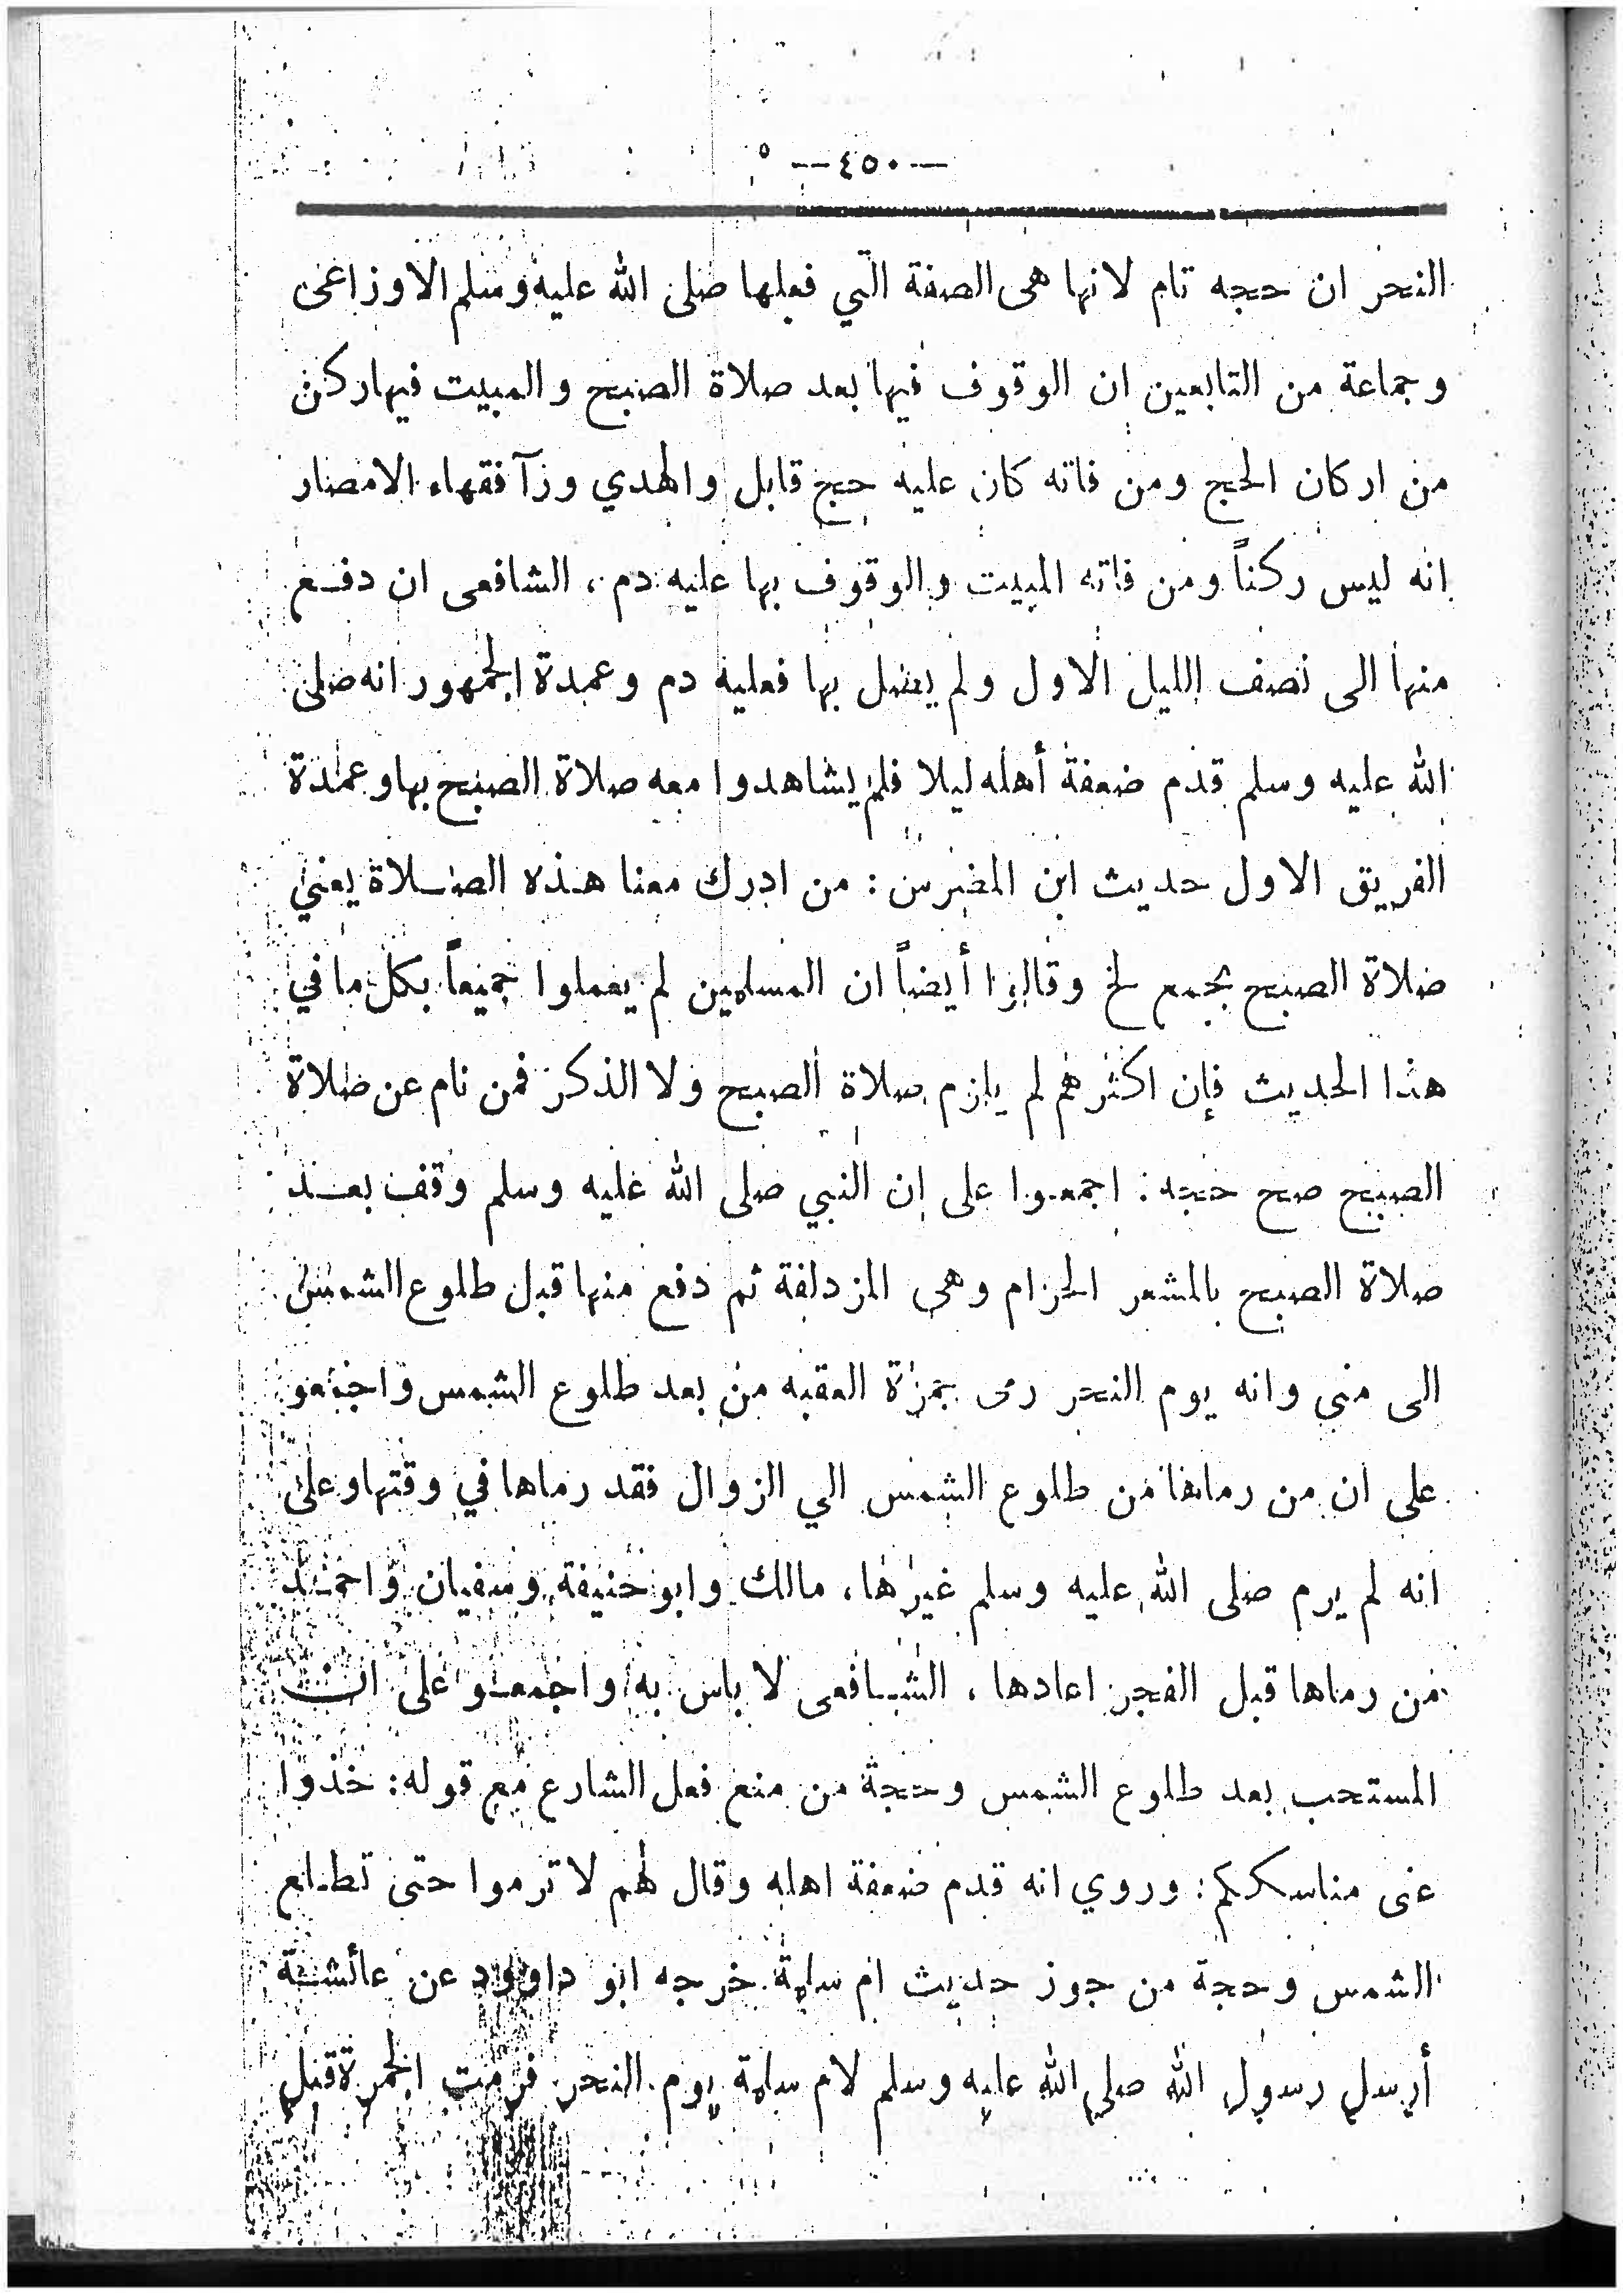 —٤٥٠—
النحر ان حجه تام لانها هى الصفة التي فعلها صلى الله عليه وسلم الاوزاعى
وجماعة من التابعين ان الوقوف فيها بعد صلاة الصبح والمبيت فيها ركن
من اركان الحج ومن فاته كان عليه حج قابل والهدي ورآ فقهاء الامصار
انه ليس ركناً ومن فاته المبيت والوقوف بها عليه دم ، الشافعى ان دفع
منها الى نصف الليل الاول ولم يصل بها فعليه دم وعمدة الجمهور انه صلى
الله عليه وسلم قدم ضعفة أهله ليلا فلم يشاهدوا معه صلاة الصبح بها وعمدة
الفريق الاول حديث ابن المضرس : من ادرك معنا هذه الصلاة يعني
صلاة الصبح بجمع لخ وقالوا أيضاً ان المسلمين لم يعملوا جميعاً بكل ما في
هذا الحديث فإن اكثرهم لم يلزم صلاة الصبح ولا الذكر فمن نام عن صلاة
الصبح صح حجه : اجمعوا على ان النبي صلى الله عليه وسلم وقف بعد
صلاة الصبح بالمشعر الحرام وهى المزدلفة ثم دفع منها قبل طلوع الشمس
الى منى وانه يوم النحر رمى جمرة العقبه من بعد طلوع الشمس واجمعو
على ان من رماها من طلوع الشمس الي الزوال فقد رماها في وقتها وعلى
انه لم يرم صلى الله عليه وسلم غيرها ، مالك وابو حنيفة وسفيان واحمد
من رماها قبل الفجر اعادها ، الشافعى لا باس به واجمعو على ان
المستحب بعد طلوع الشمس وحجة من منع فعل الشارع مع قوله : خذوا
عنى مناسككم : وروي انه قدم ضعفة اهله وقال لهم لا ترموا حتى تطلع
الشمس وحجة من جوز حديث ام سلمة خرجه ابو داوود عن عائشة
أرسل رسول الله صلى الله عليه وسلم لام سلمة يوم النحر فرمت الجمرة قبل